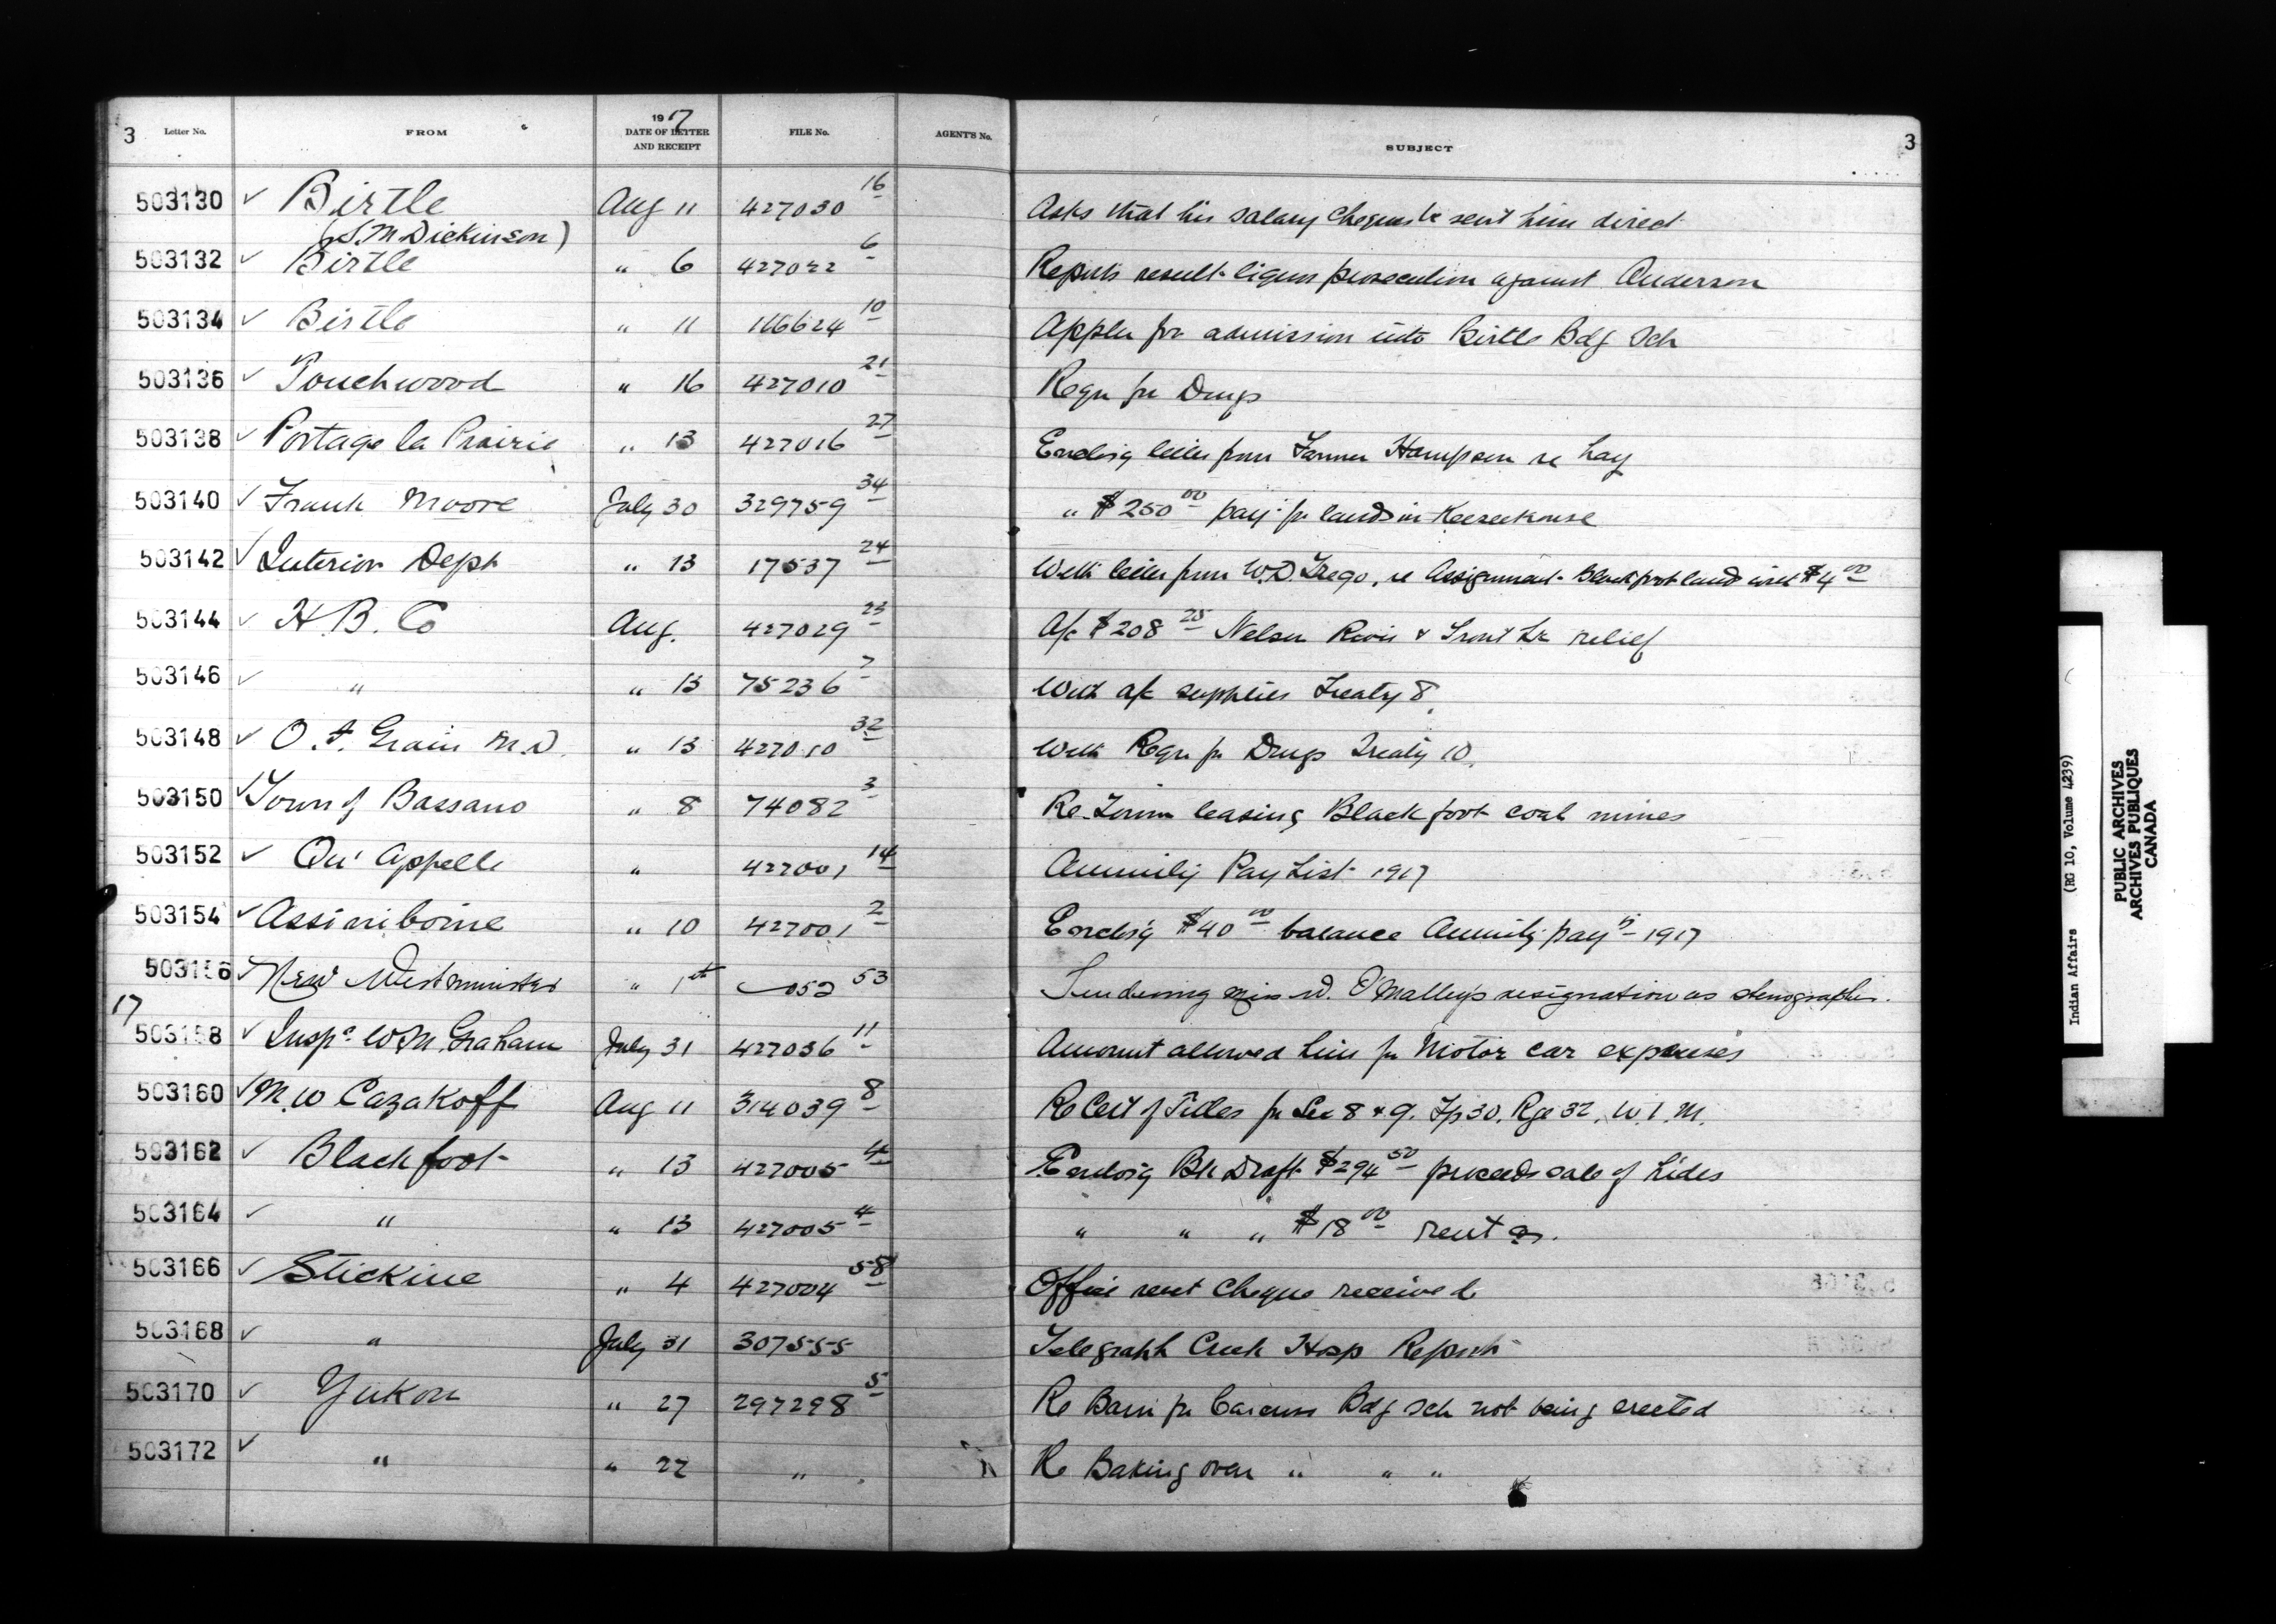 3 Letter No. FROM 1917 DATE OF LETTER AND RECEIPT FILE No. AGENT'S No. SUBJECT 3
503130 ✓ Birtle Aug 11 427030 16 Asks that his salary cheques be sent him direct
(S. M. Dickinson)
503132 ✓ Birtle " 6 427022 6 Reports result liquor prosecution against Anderson
503134 ✓ Birtle " 11 116624 10 Appln for admission into Birtle Bdg Sch
503136 ✓ Touchwood " 16 427010 21 Reqn for Drugs
503138 ✓ Portage la Prairie " 13 427016 27 Enclosg letter from Farmer Hampson re hay
503140 ✓ Frank Moore July 30 329759 34 " $250 00 payt for lands in Keeseekouse
503142 ✓ Interior Dept " 13 17537 24 With letter from W. D. Trego, re Assignment Blackfoot land with $4 00
503144 ✓ H. B. Co Aug. 427029 23 A/c $208 25 Nelson River & Trout Lk relief
503146 ✓ " " 13 75236 7 With a/c supplies Treaty 8.
503148 ✓ O. I. Grain M.D. " 13 427010 32 With Reqn for Drugs Treaty 10.
503150 ✓ Town of Bassano " 8 74082 3 Re Town leasing Blackfoot coal mines
503152 ✓ Qu'Appelle " 427001 14 Annuity Pay List 1917
503154 ✓ Assiniboine " 10 427001 2 Enclosg $40 00 balance Annuity payts 1917
503156 ✓ New Westminster " 1st 052 53 Tendering Miss W. O'Malley's resignation as stenographer.
17
503158 ✓ Inspr W. M. Graham July 31 427036 11 Amount allowed him for Motor car expenses
503160 ✓ M. W Cazakoff Aug 11 314039 8 Re Cert of Titles for Sec 8 & 9. Tp 30. Rge 32. W. 1. M.
503162 ✓ Blackfoot " 13 427005 4 Enclosg Bk Draft $294 50 proceeds sale of hides
503164 ✓ " " 13 427005 4 " " " $18 00 rent
503166 ✓ Stickine " 4 427004 58 Office rent cheque received
503168 ✓ " July 31 307555 Telegraph Creek Hosp Report
503170 ✓ Yukon " 27 297298 5 Re Barn for Carcross Bdg Sch not being erected
503172 ✓ " " 22 " Re Baking oven " " "
Indian Affairs (RG 10, Volume 4239)
PUBLIC ARCHIVES
ARCHIVES PUBLIQUES
CANADA